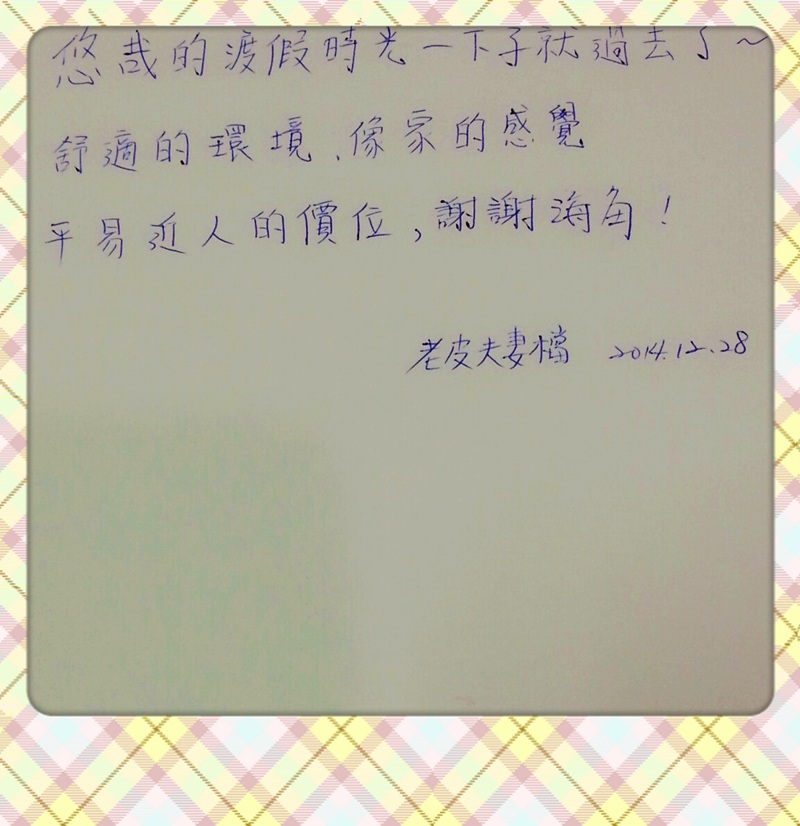 悠哉的渡假時光一下子就過去了～
舒適的環境、像家的感覺
平易近人的價位，謝謝海角！
老皮夫妻檔 2014.12.28